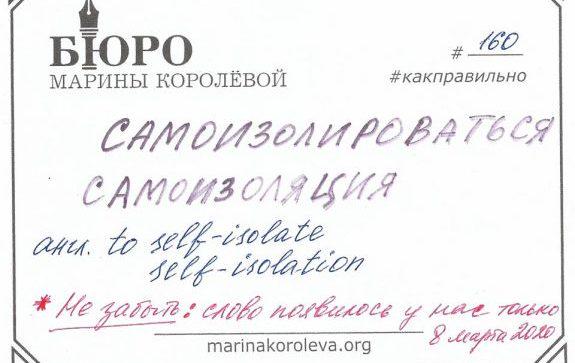 БЮРО
МАРИНЫ КОРОЛЁВОЙ
# 160
#какправильно
САМОИЗОЛИРОВАТЬСЯ
САМОИЗОЛЯЦИЯ
англ. to self-isolate
self-isolation
* Не забыть: слово появилось у нас только
8 марта 2020
marinakoroleva.org